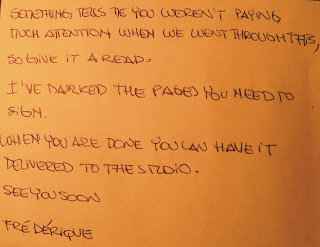 SOMETHING TELLS ME YOU WEREN'T PAYING
MUCH ATTENTION WHEN WE WENT THROUGH THIS,
SO GIVE IT A READ.
I'VE DARKED THE PAGES YOU NEED TO
SIGN.
WHEN YOU ARE DONE YOU CAN HAVE IT
DELIVERED TO THE STUDIO.
SEE YOU SOON
FRÉDÉRIQUE